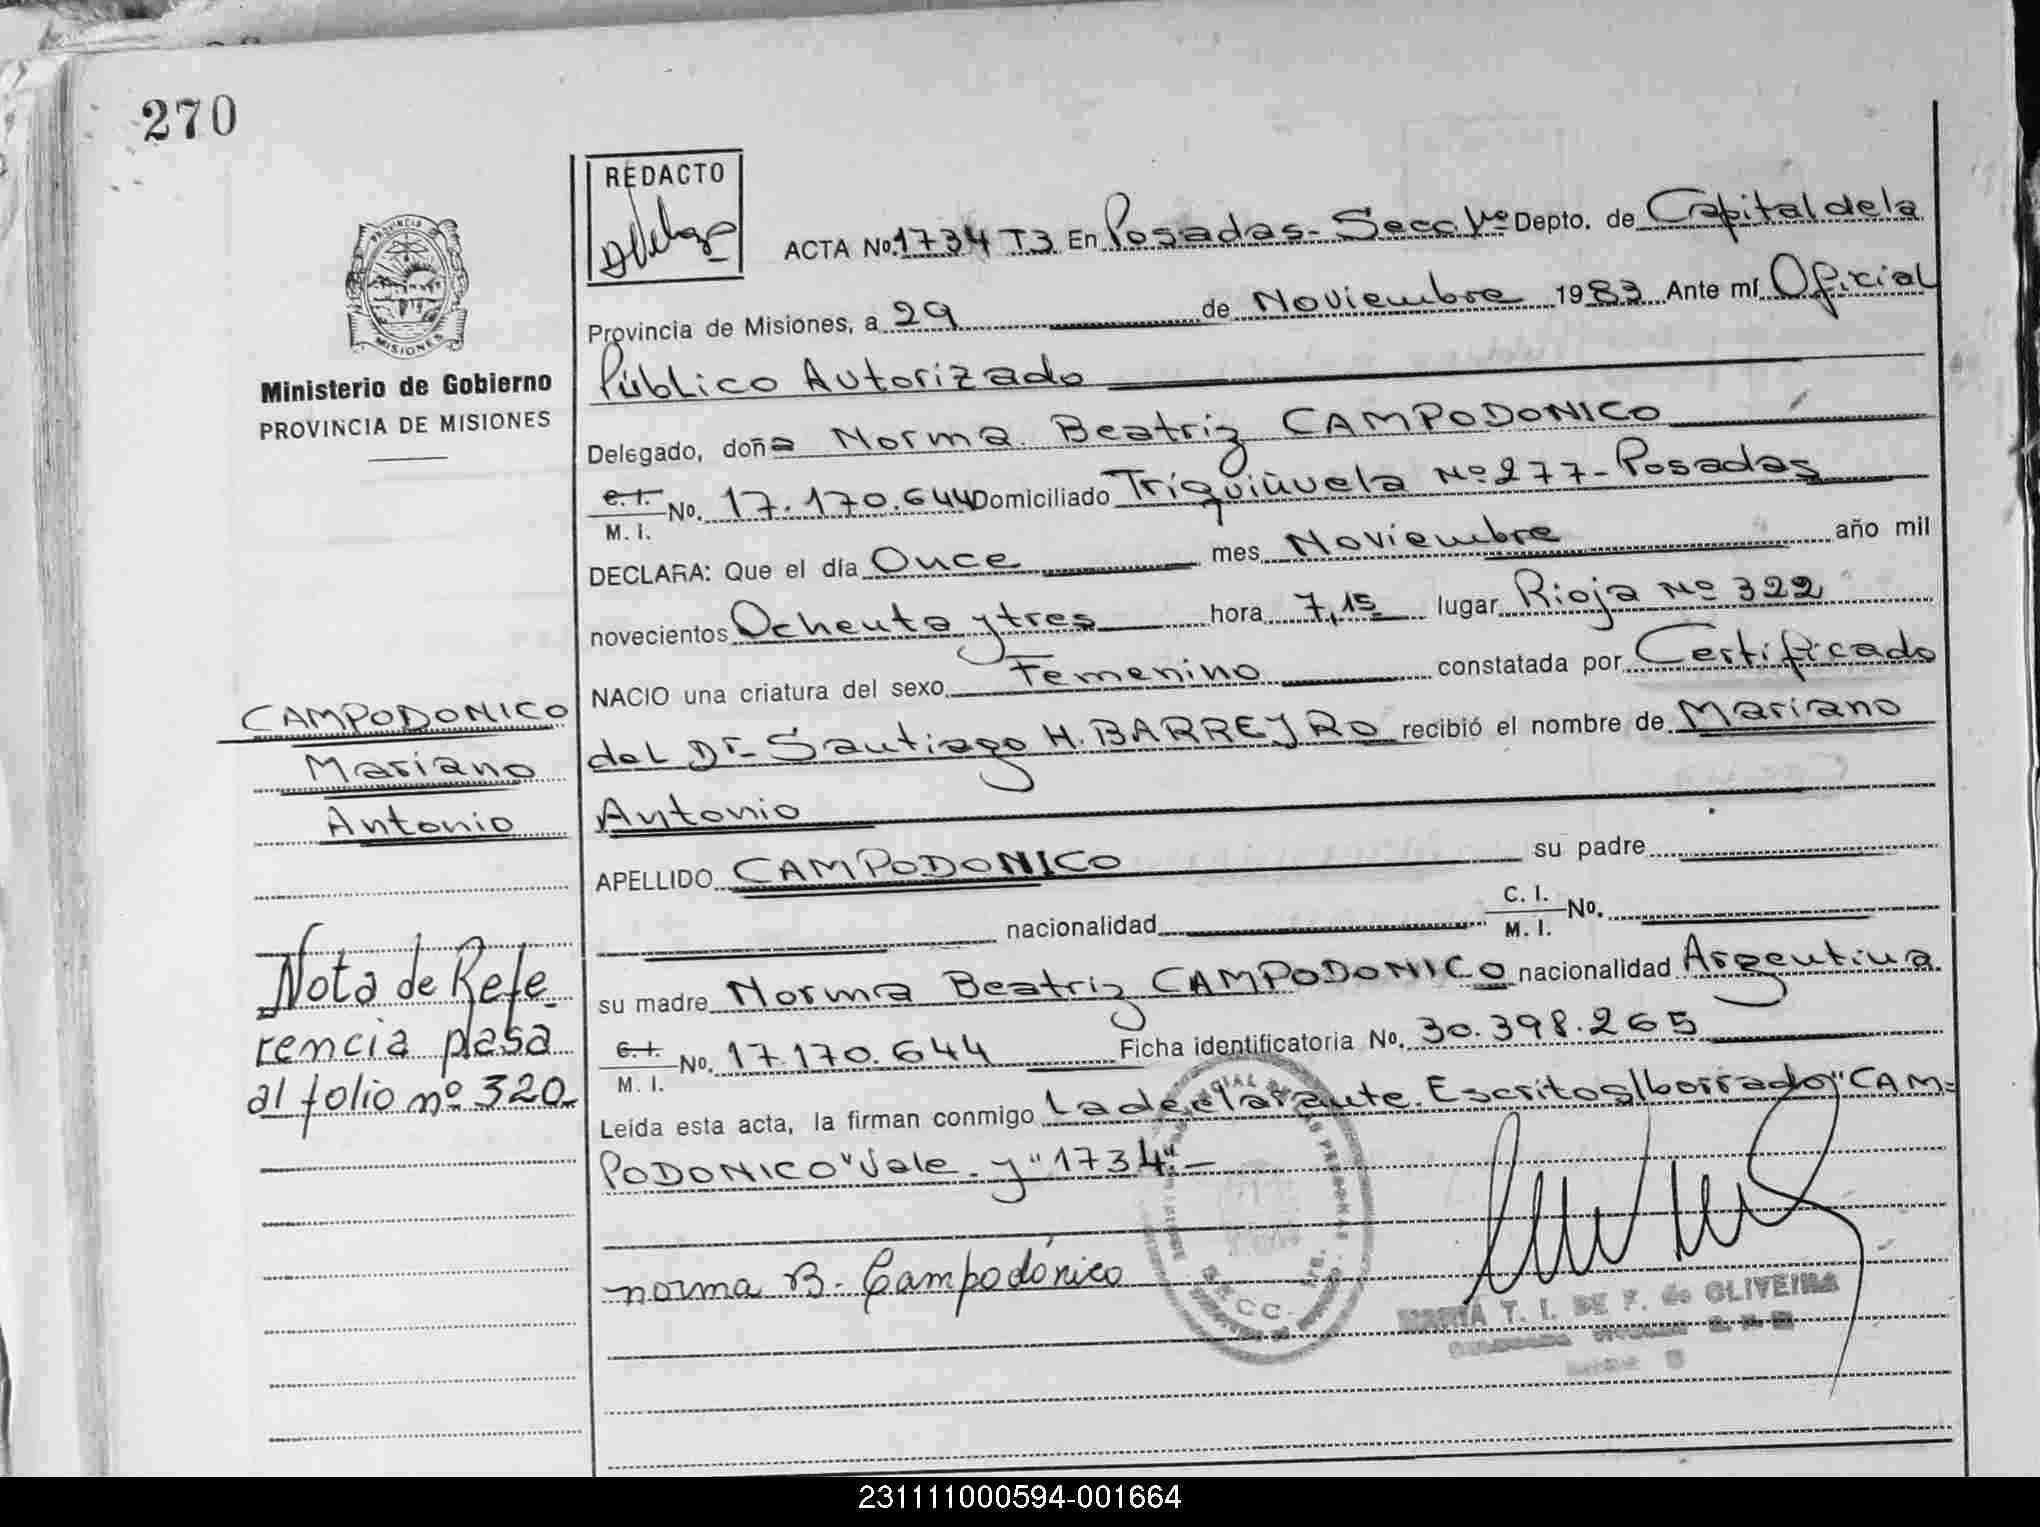 270
REDACTO
PROVINCIA
MISIONES
Ministerio de Gobierno
PROVINCIA DE MISIONES
ACTA No. 1734 T3 En Posadas- Secc. 1ra Depto. de Capital de la
Provincia de Misiones, a 29 de Noviembre 1983 Ante mí Oficial
Público Autorizado
Delegado, doña Norma Beatriz CAMPODONICO
C. I.
M. I. No. 17.170.644 Domiciliado Nº 277- Posadas
DECLARA: Que el día Once mes Noviembre año mil
novecientos Ochenta y tres hora 7,15 lugar Rioja Nº 322
NACIO una criatura del sexo Femenino constatada por Certificado
del Dr. Santiago H. BARREYRO recibió el nombre de Mariano
Antonio
APELLIDO CAMPODONICO su padre
nacionalidad C. I.
M. I. No.
su madre Norma Beatriz CAMPODONICO nacionalidad Argentina
C. I.
M. I. No. 17.170.644 Ficha identificatoria No. 30.398.265
Leída esta acta, la firman conmigo La declarante. Escritos/borrado "CAM=
PODONICO" Vale. y "1734".-
norma B. Campodónico
MARIA T. I. DE F. de OLIVEIRA
CAMPODONICO
Mariano
Antonio
Nota de Refe
rencia pasa
al folio nº 320
231111000594-001664